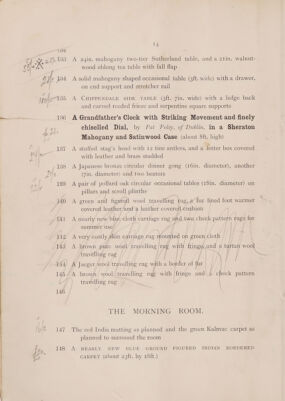 14
132
133 A 24in. mahogany two-tier Sutherland table, and a 21in. walnut-
wood oblong tea table with fall flap
134 A solid mahogany shaped occasional table (3ft. wide) with a drawer,
on end support and stretcher rail
135 A CHIPPENDALE SIDE TABLE (3ft. 7in. wide) with a ledge back
and carved reeded frieze and serpentine square supports
136 A Grandfather's Clock with Striking Movement and finely
chiselled Dial, by Pat Foley, of Dublin, in a Sheraton
Mahogany and Satinwood Case (about 8ft. high)
137 A stuffed stag's head with 12 tine antlers, and a letter box covered
with leather and brass studded
138 A Japanese bronze circular dinner gong (16in. diameter), another
(7in. diameter) and two beaters
139 A pair of pollard oak circular occasional tables (18in. diameter) on
pillars and scroll plinths
140 A green and figured wool travelling rug, a fur lined foot warmer
covered leather and a leather covered cushion
141 A nearly new blue cloth carriage rug and two check pattern rugs for
summer use
142 A very costly skin carriage rug mounted on green cloth
143 A brown pure wool travelling rug with fringe and a tartan wool
travelling rug
144 A Jaeger wool travelling rug with a border of fur
145 A brown wool travelling rug with fringe and check pattern
travelling rug
146
THE MORNING ROOM.
147 The red India matting as planned and the green Kalmuc carpet as
planned to surround the room
148 A NEARLY NEW BLUE GROUND FIGURED INDIAN BORDERED
CARPET (about 23ft. by 16ft.)